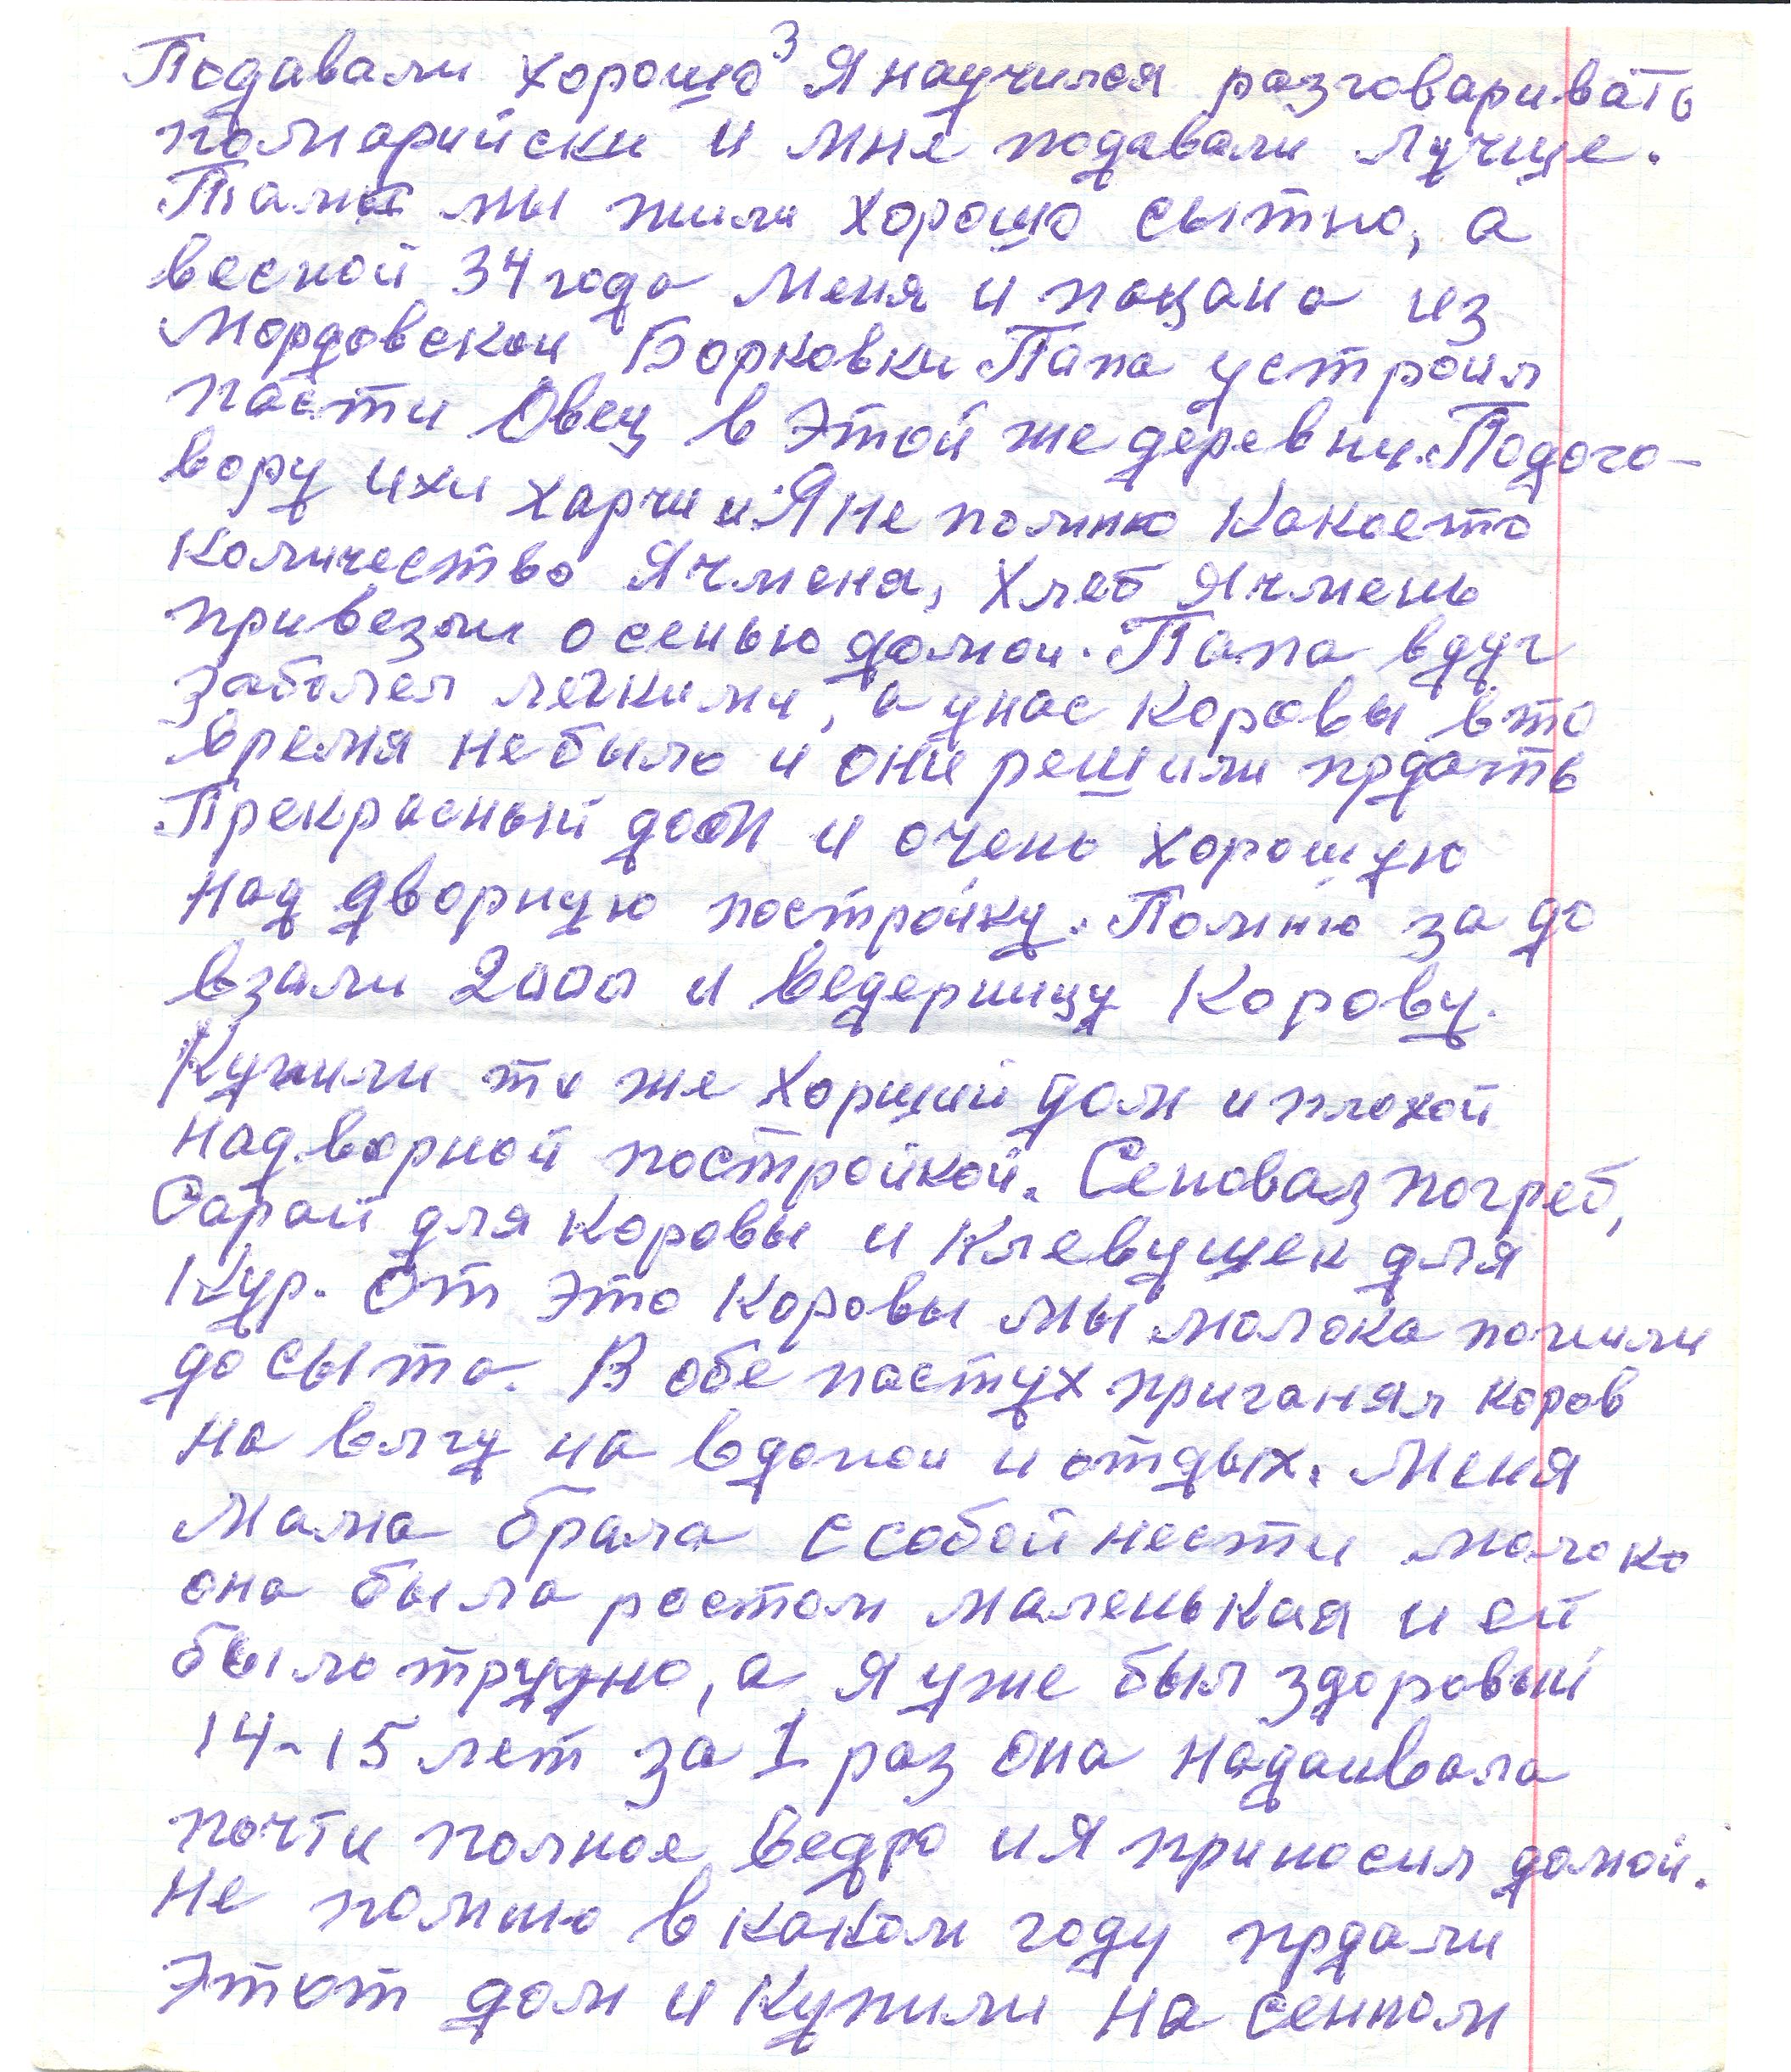 3
Подавали хорошо Я научился разговаривать
помарийски и мне подавали лучше.
Там мы жили хорошо сытно, а
весной 34 года меня и пацана из
Мордовской Борковки Папа устроил
пасти Овец в Этой же деревни. Подого-
вору ихи харчи и Я не помню Какоето
Количество Ячменя, Хлеб Ячмень
привезли осенью домой. Папа вдуг
заболел легкими, а унас коровы вто
время небыло и они решили прдать
Прекрасный дом и очень хорошую
над дворную постройку. Помню за до
взали 2000 и ведерницу Корову.
Купили то же Хорший дом и плохой
надворной постройкой. Сеновал погреб,
Сарай для коровы и Клевушек для
Кур. От это Коровы мы молока попили
до сыта. В обе пастух приганял коров
на влгу на вдопой и отдых. Меня
мама брала ссобой нести молоко
она была ростом маленькая и ей
было трудно, а я уже был здоровый
14-15 лет за 1 раз она надаивала
почти полное Ведро и Я приносил домой.
Не помню в каком году прдали
Этот дом и Купили на сенном